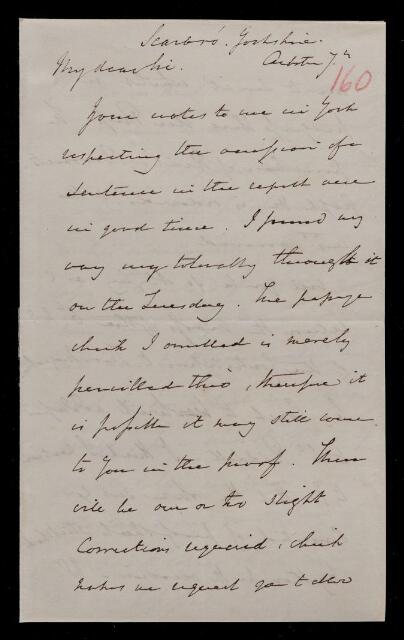 Scarbro'. Yorkshire.
My dear Sir. October 7th
160
Your notes to me in York
respecting the omission of a
sentence in the report were
in good time. I found my
way very tolerably through it
on the Tuesday. The passage
which I omitted is merely
pencilled thro', therefore it
is possible it may still come
to You in the proof. There
will be one or two slight
Corrections required, which
makes me request you to allow